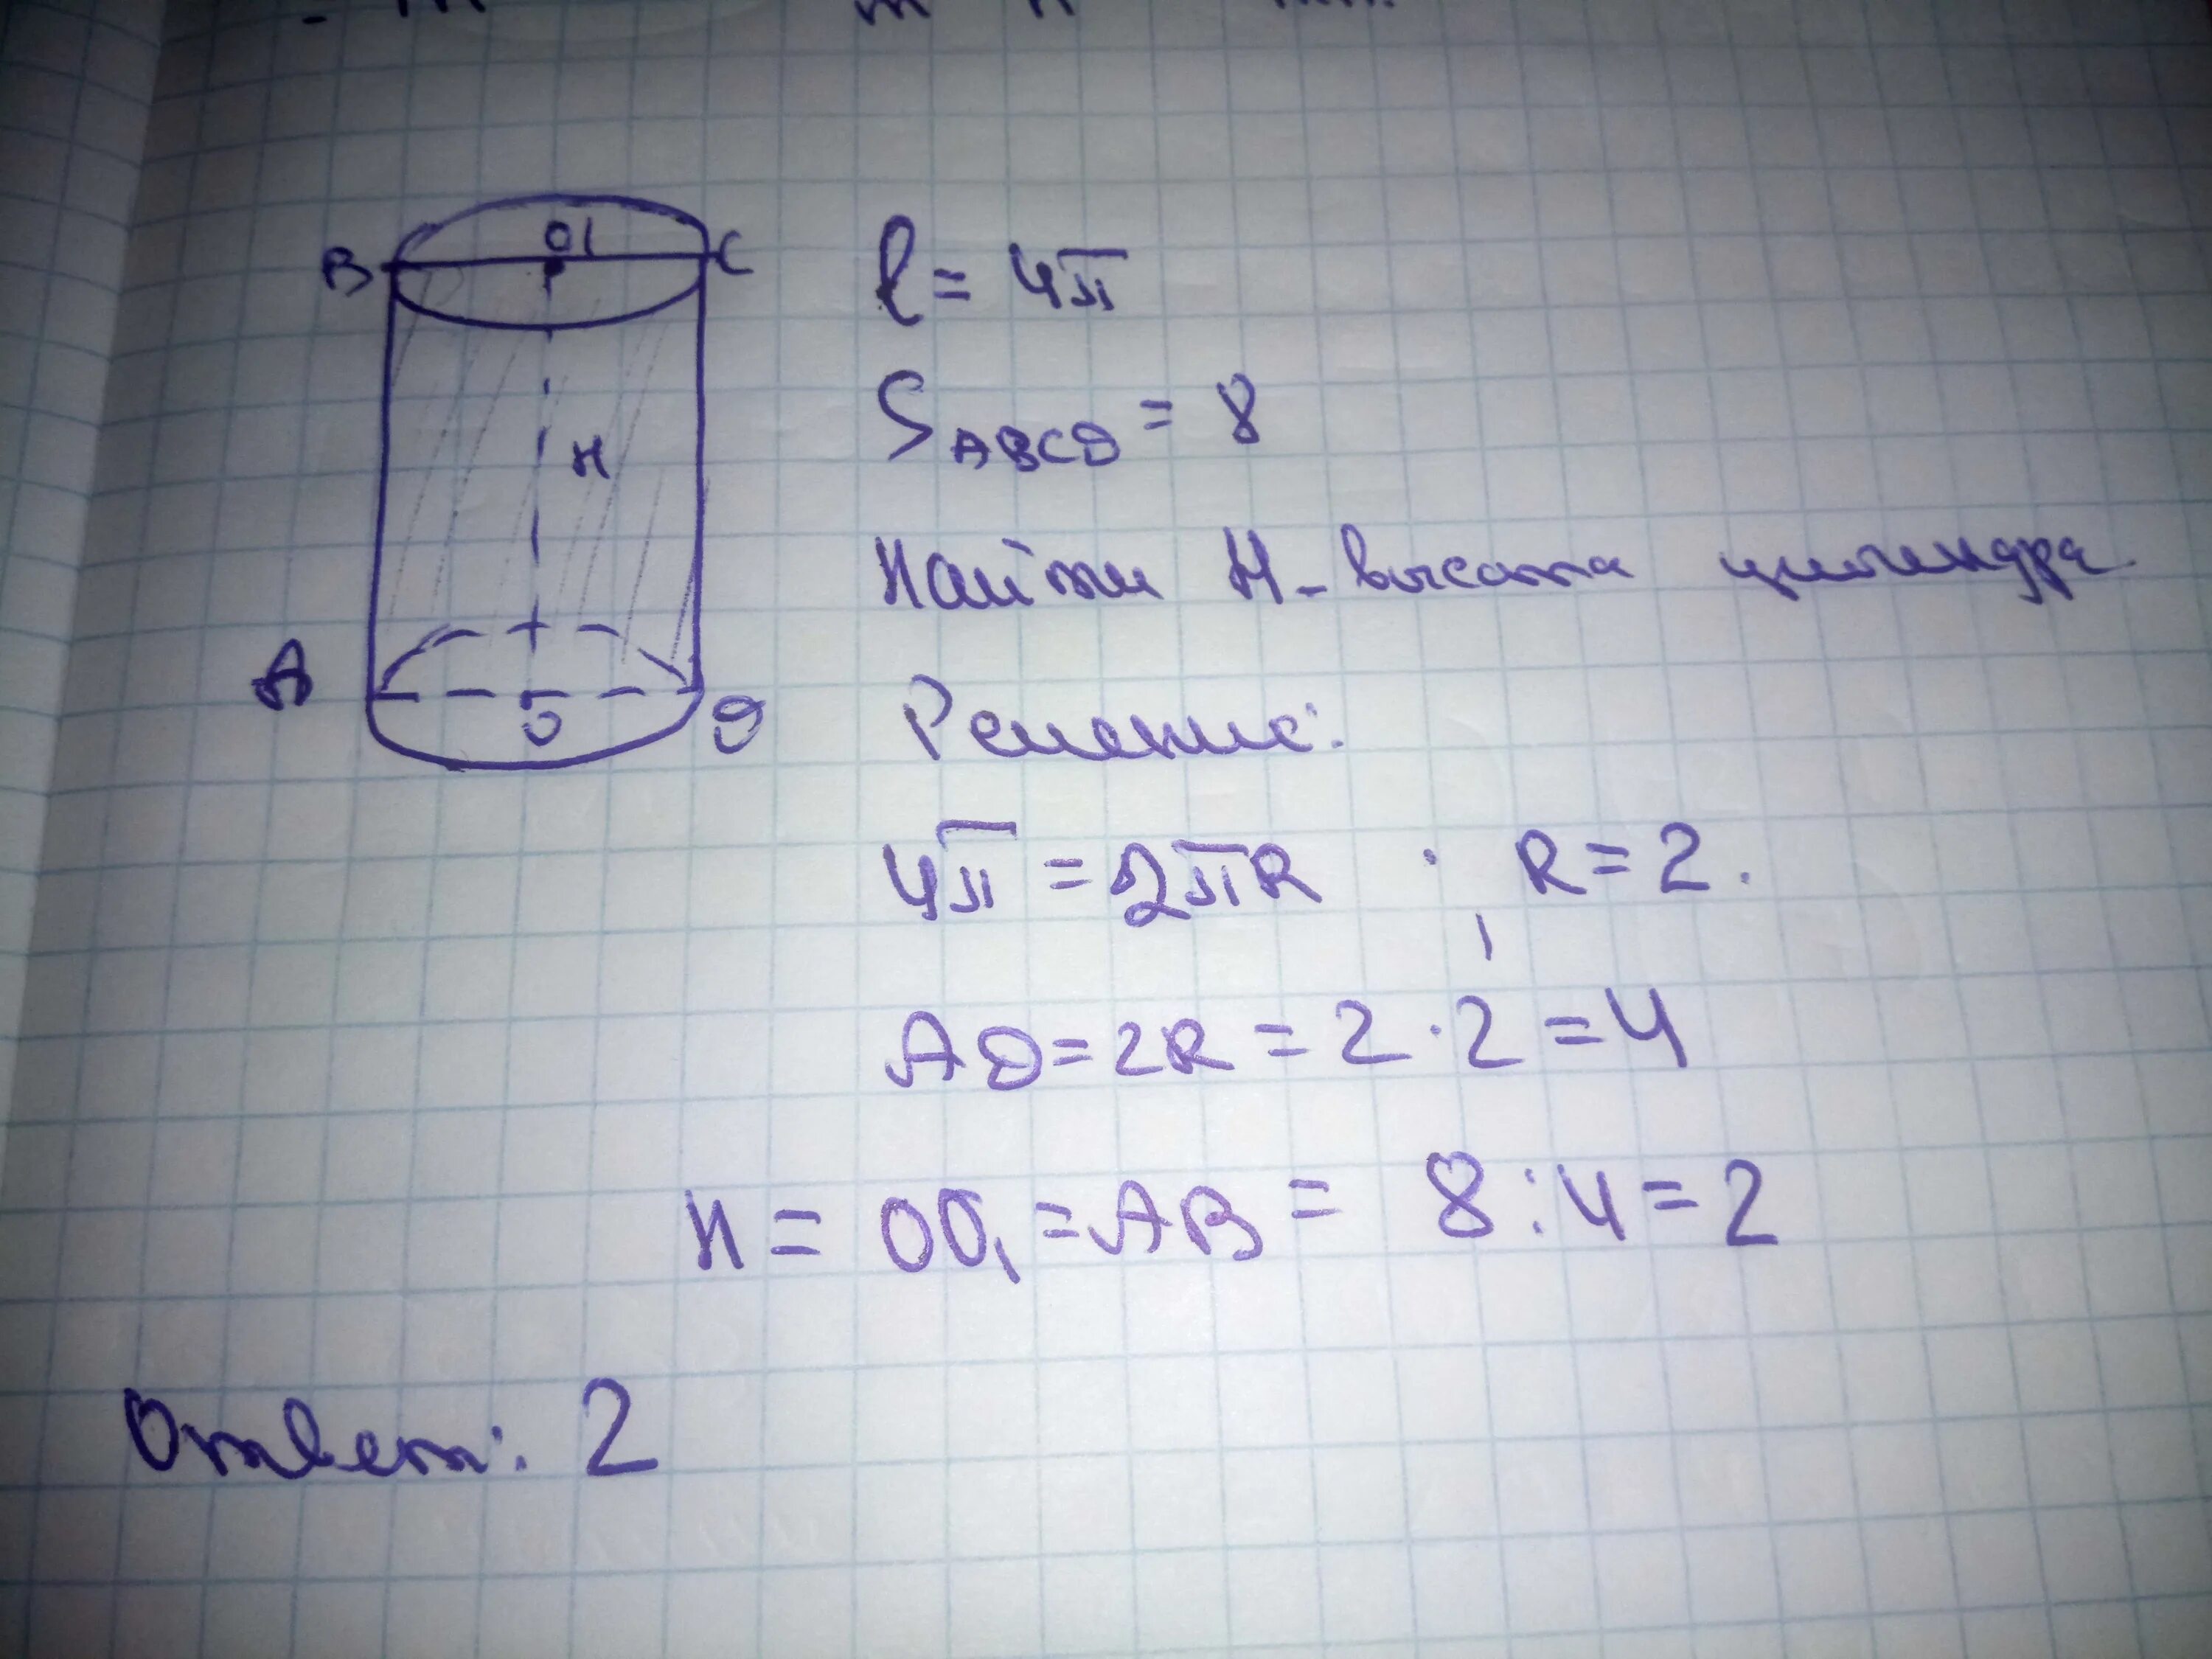 B O1 C
H
A O D
l = 4π
S ABCD = 8
Найти H - высота цилиндра
Решение:
4π = 2πR ; R = 2.
AD = 2R = 2 · 2 = 4
H = OO₁ = AB = 8 : 4 = 2
Ответ: 2